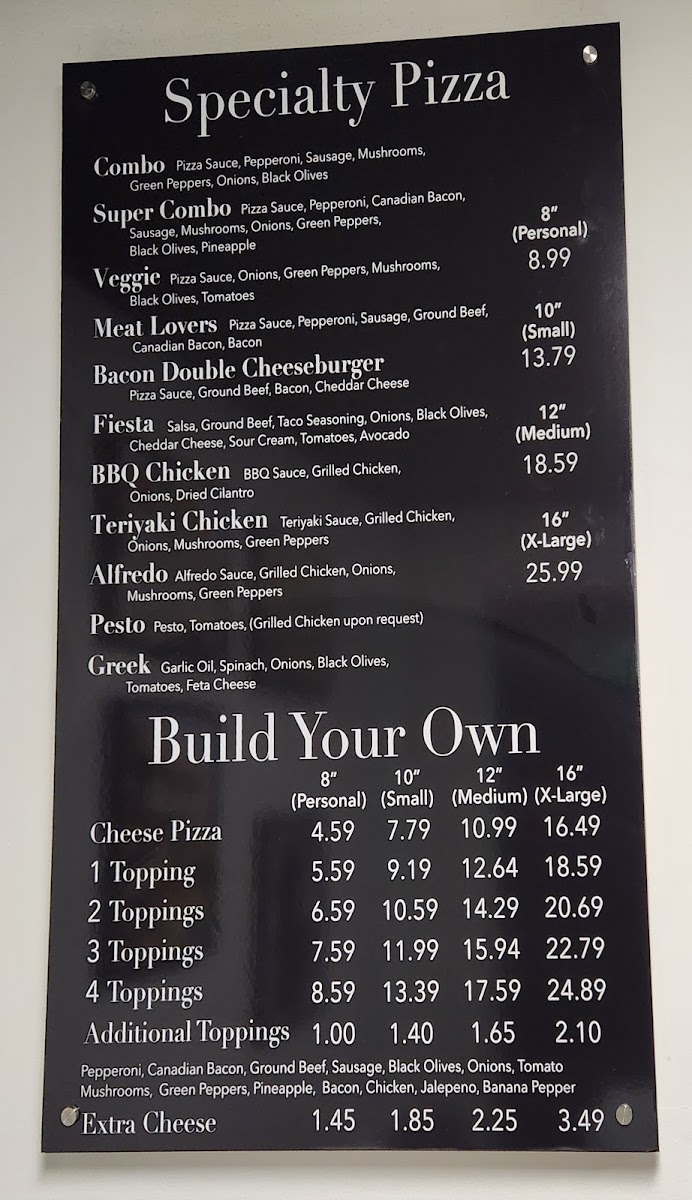 Specialty Pizza
Combo Pizza Sauce, Pepperoni, Sausage, Mushrooms,
Green Peppers, Onions, Black Olives
Super Combo Pizza Sauce, Pepperoni, Canadian Bacon,
Sausage, Mushrooms, Onions, Green Peppers,
Black Olives, Pineapple
Veggie Pizza Sauce, Onions, Green Peppers, Mushrooms,
Black Olives, Tomatoes
Meat Lovers Pizza Sauce, Pepperoni, Sausage, Ground Beef,
Canadian Bacon, Bacon
Bacon Double Cheeseburger
Pizza Sauce, Ground Beef, Bacon, Cheddar Cheese
Fiesta Salsa, Ground Beef, Taco Seasoning, Onions, Black Olives,
Cheddar Cheese, Sour Cream, Tomatoes, Avocado
BBQ Chicken BBQ Sauce, Grilled Chicken,
Onions, Dried Cilantro
Teriyaki Chicken Teriyaki Sauce, Grilled Chicken,
Onions, Mushrooms, Green Peppers
Alfredo Alfredo Sauce, Grilled Chicken, Onions,
Mushrooms, Green Peppers
Pesto Pesto, Tomatoes, (Grilled Chicken upon request)
Greek Garlic Oil, Spinach, Onions, Black Olives,
Tomatoes, Feta Cheese
8"
(Personal)
8.99
10"
(Small)
13.79
12"
(Medium)
18.59
16"
(X-Large)
25.99
Build Your Own
8" 10" 12" 16"
(Personal) (Small) (Medium) (X-Large)
Cheese Pizza 4.59 7.79 10.99 16.49
1 Topping 5.59 9.19 12.64 18.59
2 Toppings 6.59 10.59 14.29 20.69
3 Toppings 7.59 11.99 15.94 22.79
4 Toppings 8.59 13.39 17.59 24.89
Additional Toppings 1.00 1.40 1.65 2.10
Pepperoni, Canadian Bacon, Ground Beef, Sausage, Black Olives, Onions, Tomato
Mushrooms, Green Peppers, Pineapple, Bacon, Chicken, Jalepeno, Banana Pepper
Extra Cheese 1.45 1.85 2.25 3.49